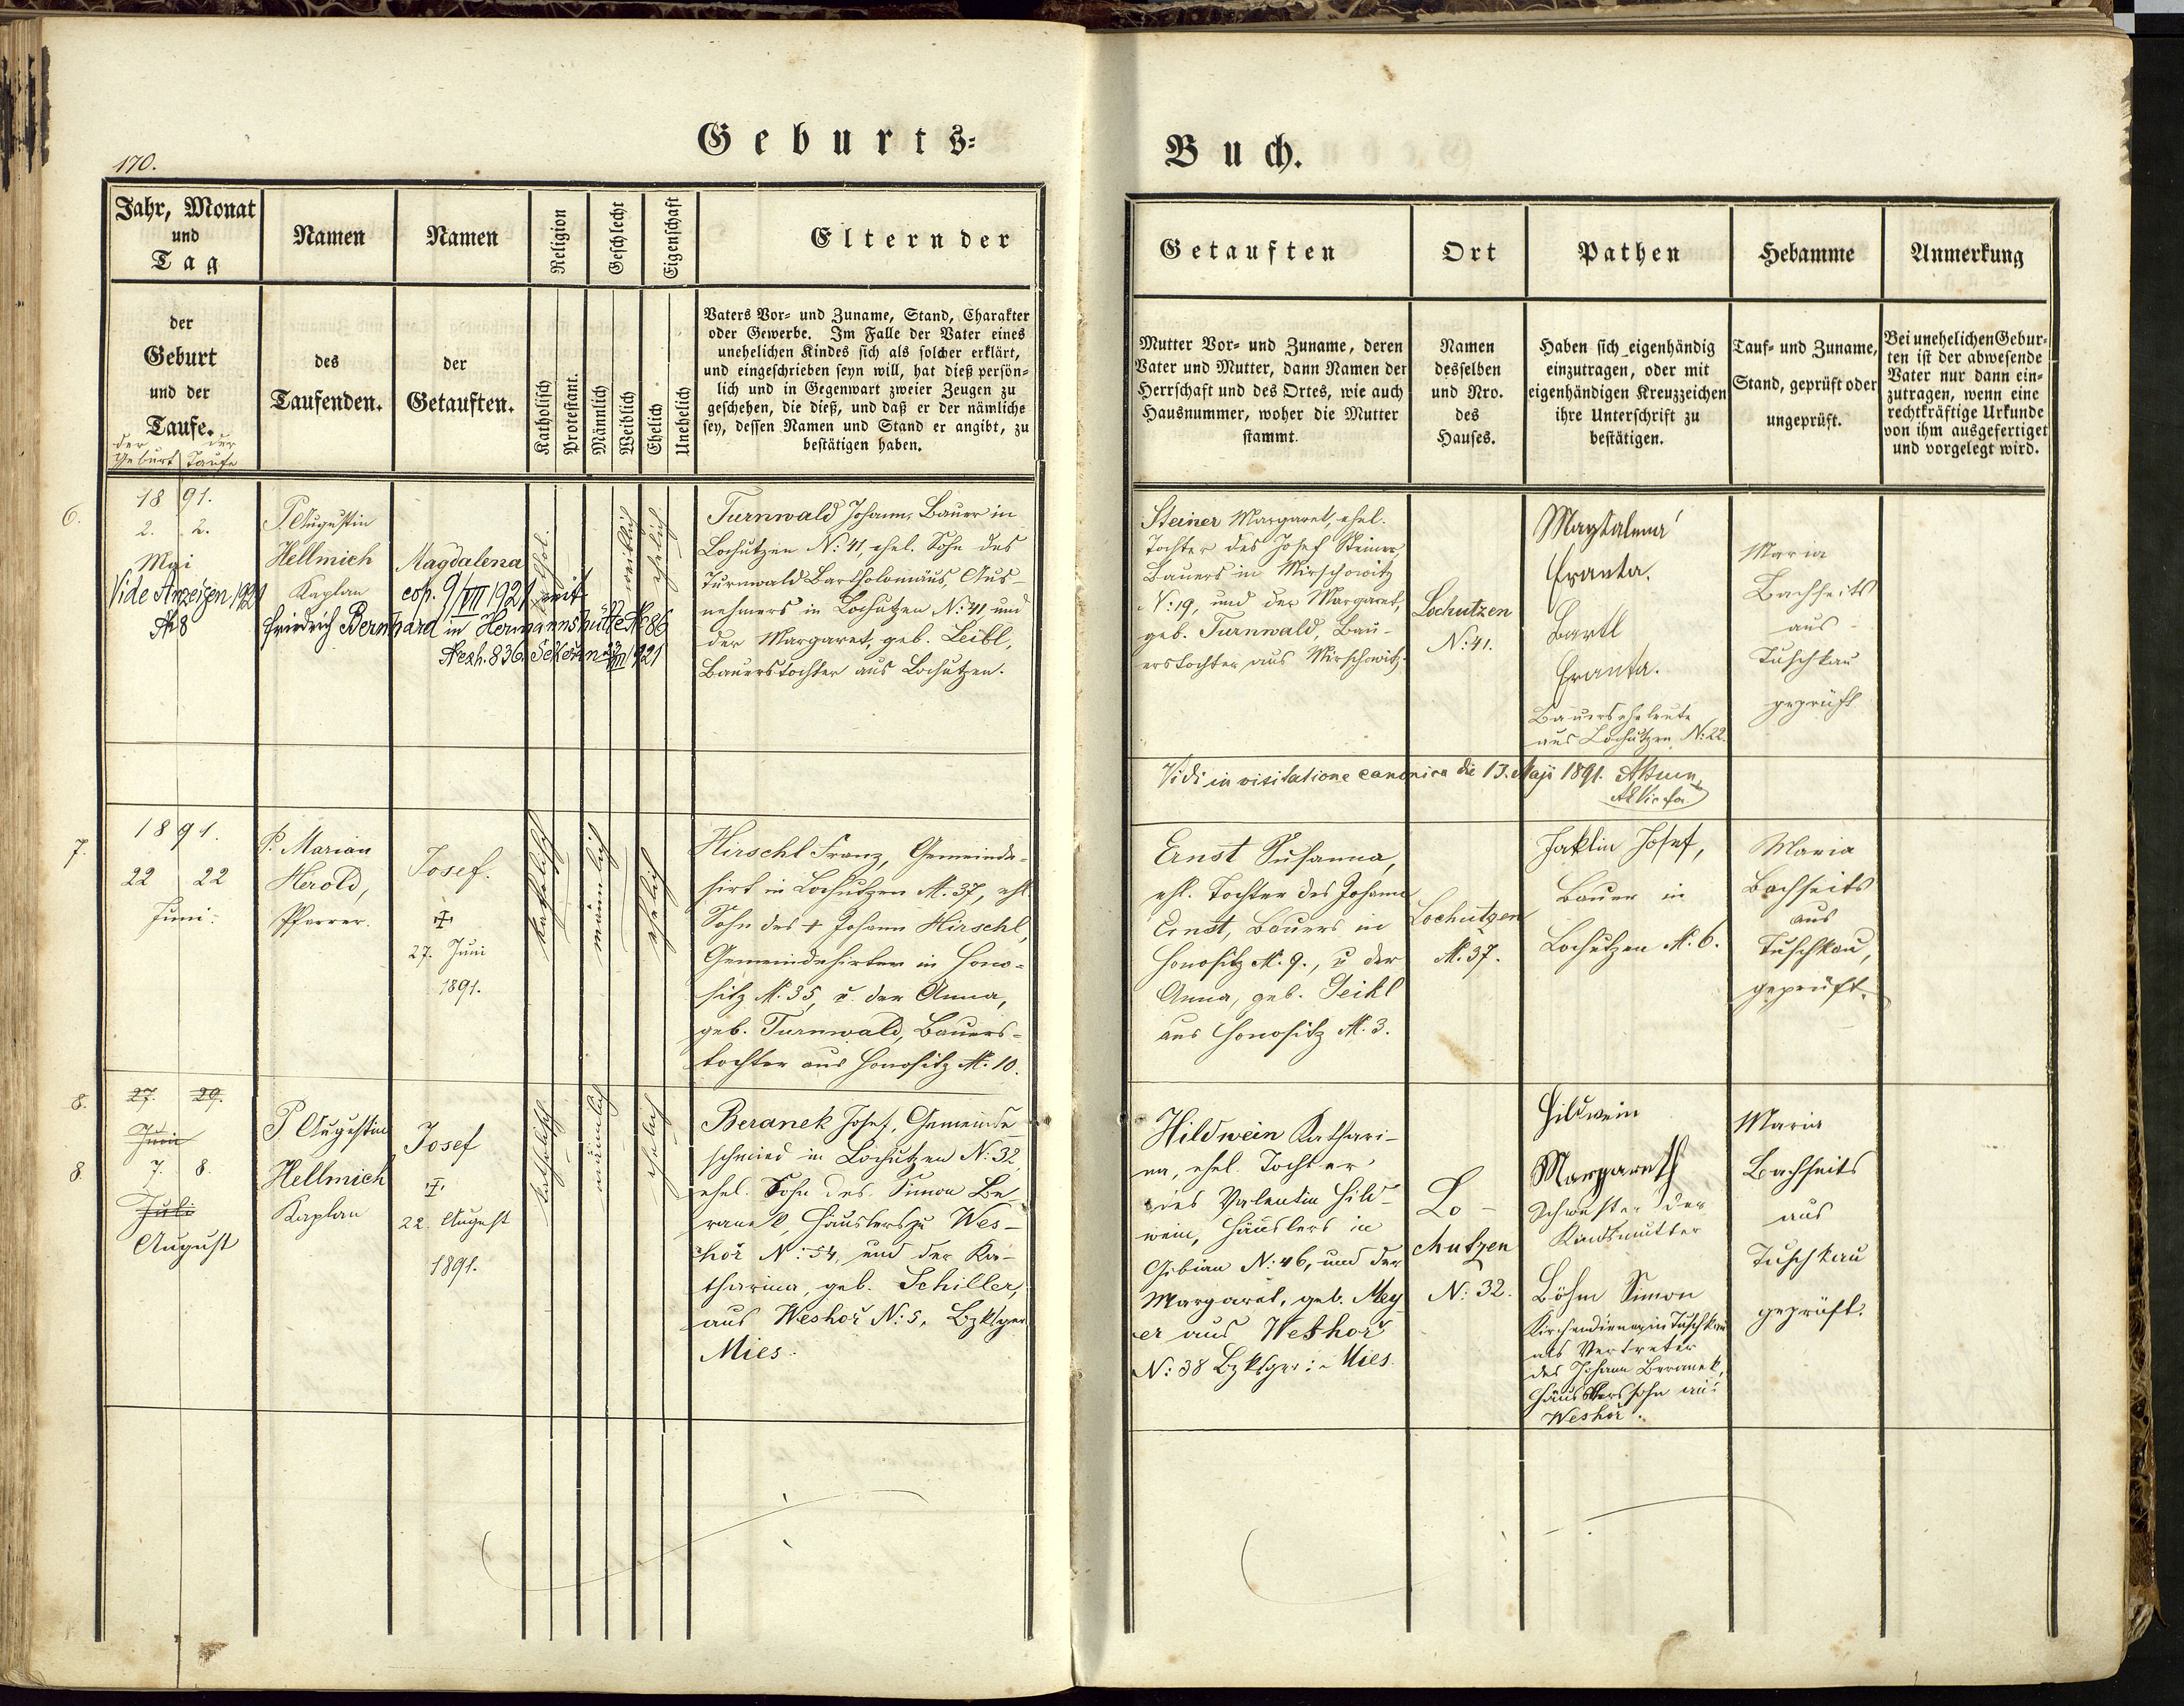 Geburts=
Buch.
170.
Jahr, Monat
und
Tag
Namen
Namen
Religion
Geschlecht
Eigenschaft
Eltern der
der
Geburt
und der
Taufe.
der der
Geburt Taufe
des
Taufenden.
der
Getauften.
Katholisch
Protestant.
Männlich
Weiblich
Ehelich
Unehelich
Vaters Vor= und Zuname, Stand, Charakter
oder Gewerbe. Im Falle der Vater eines
unehelichen Kindes sich als solcher erklärt,
und eingeschrieben seyn will, hat dieß persön=
lich und in Gegenwart zweier Zeugen zu
geschehen, die dieß, und daß er der nämliche
sey, dessen Namen und Stand er angibt, zu
bestätigen haben.
Getauften
Ort
Pathen
Hebamme
Anmerkung
Mutter Vor= und Zuname, deren
Vater und Mutter, dann Namen der
Herrschaft und des Ortes, wie auch
Hausnummer, woher die Mutter
stammt.
Namen
desselben
und Nro.
des
Hauses.
Haben sich eigenhändig
einzutragen, oder mit
eigenhändigen Kreuzzeichen
ihre Unterschrift zu
bestätigen.
Tauf= und Zuname,
Stand, geprüft oder
ungeprüft.
Bei unehelichen Gebur=
ten ist der abwesende
Vater nur dann ein=
zutragen, wenn eine
rechtkräftige Urkunde
von ihm ausgefertiget
und vorgelegt wird.
6.
18 91.
2. 2.
Mai
Vide Anzeigen 1921
№ 8
P. Augustin
Hellmich
Kaplan
Magdalena
cop. 9/VII 1921 mit
Friedrich Bernhard in Hermannshütte № 86
836
1921
kathol.
weiblich
ehelich
Turnwald Johann, Bauer in
Lochutzen N: 41, ehel. Sohn des
Turnwald Bartholomäus, Aus-
nehmers in Lochutzen N: 41 und
der Margaret, geb. Leibl,
Bauerstochter aus Lochutzen.
Steiner Margaret, ehel.
Tochter des Josef Steiner,
Bauers in Mirschowitz
N: 19, und der Margaret,
geb. Turnwald, Bau-
erstochter aus Mirschowitz.
Lochutzen
N: 41.
Magtalena
Franta.
Bartl
Franta.
Bauerseheleute
aus Lochutzen N: 22.
Maria
Bachheits
aus
Tuschkau
geprüft
Vidi in visitatione canonica die 13. Maji 1891.
7.
1891.
22 22
Juni.
P. Marian
Herold,
Pfarrer.
Josef.
27. Juni
1891.
katholisch
männlich
ehelich
Hirschl Franz, Gemeinde-
hirt in Lochutzen №. 37, ehl.
Sohn des † Johann Hirschl,
Gemeindehirten in Hono-
sitz №. 35, u. der Anna,
geb. Turnwald, Bauers-
tochter aus Honositz №. 10.
Ernst Susanna,
ehl. Tochter des Johann
Ernst, Bauers in
Honositz №. 9., u. der
Anna, geb. Peihl
aus Honositz №. 3.
Lochutzen
№. 37.
Josef,
Bauer in
Lochutzen №. 6.
Maria
Bachheits
aus
Tuschkau,
geprüft.
8.
27. 29.
Juni
8.
7. 8.
Juli
August
P. Augustin
Hellmich
Kaplan
Josef
22. August
1891.
katholisch
männlich
ehelich
Beranek Josef, Gemeinde-
schmied in Lochutzen N: 32,
ehel. Sohn des Simon Be-
ranek, Häuslers zu Wes-
hoř N: 54, und der Ka-
tharina, geb. Schiller,
aus Weshoř N: 5, Bzksger
Mies.
Hildwein Kathari-
na, ehel. Tochter
des Valentin Hild-
wein, Häuslers in
Gibian N: 46, und der
Margaret, geb. Mey-
er aus Weshoř
N: 38 Bzksger: Mies.
Lo-
chutzen
N: 32.
Hildwein
Margareth
Schwester der
Kindsmutter
Böhm Simon
Kirchendiener in Tuschkau
als Vertreter
des Johann Beranek,
Häuslerssohn aus
Weshoř.
Maria
Bachheits
aus
Tuschkau
geprüft.